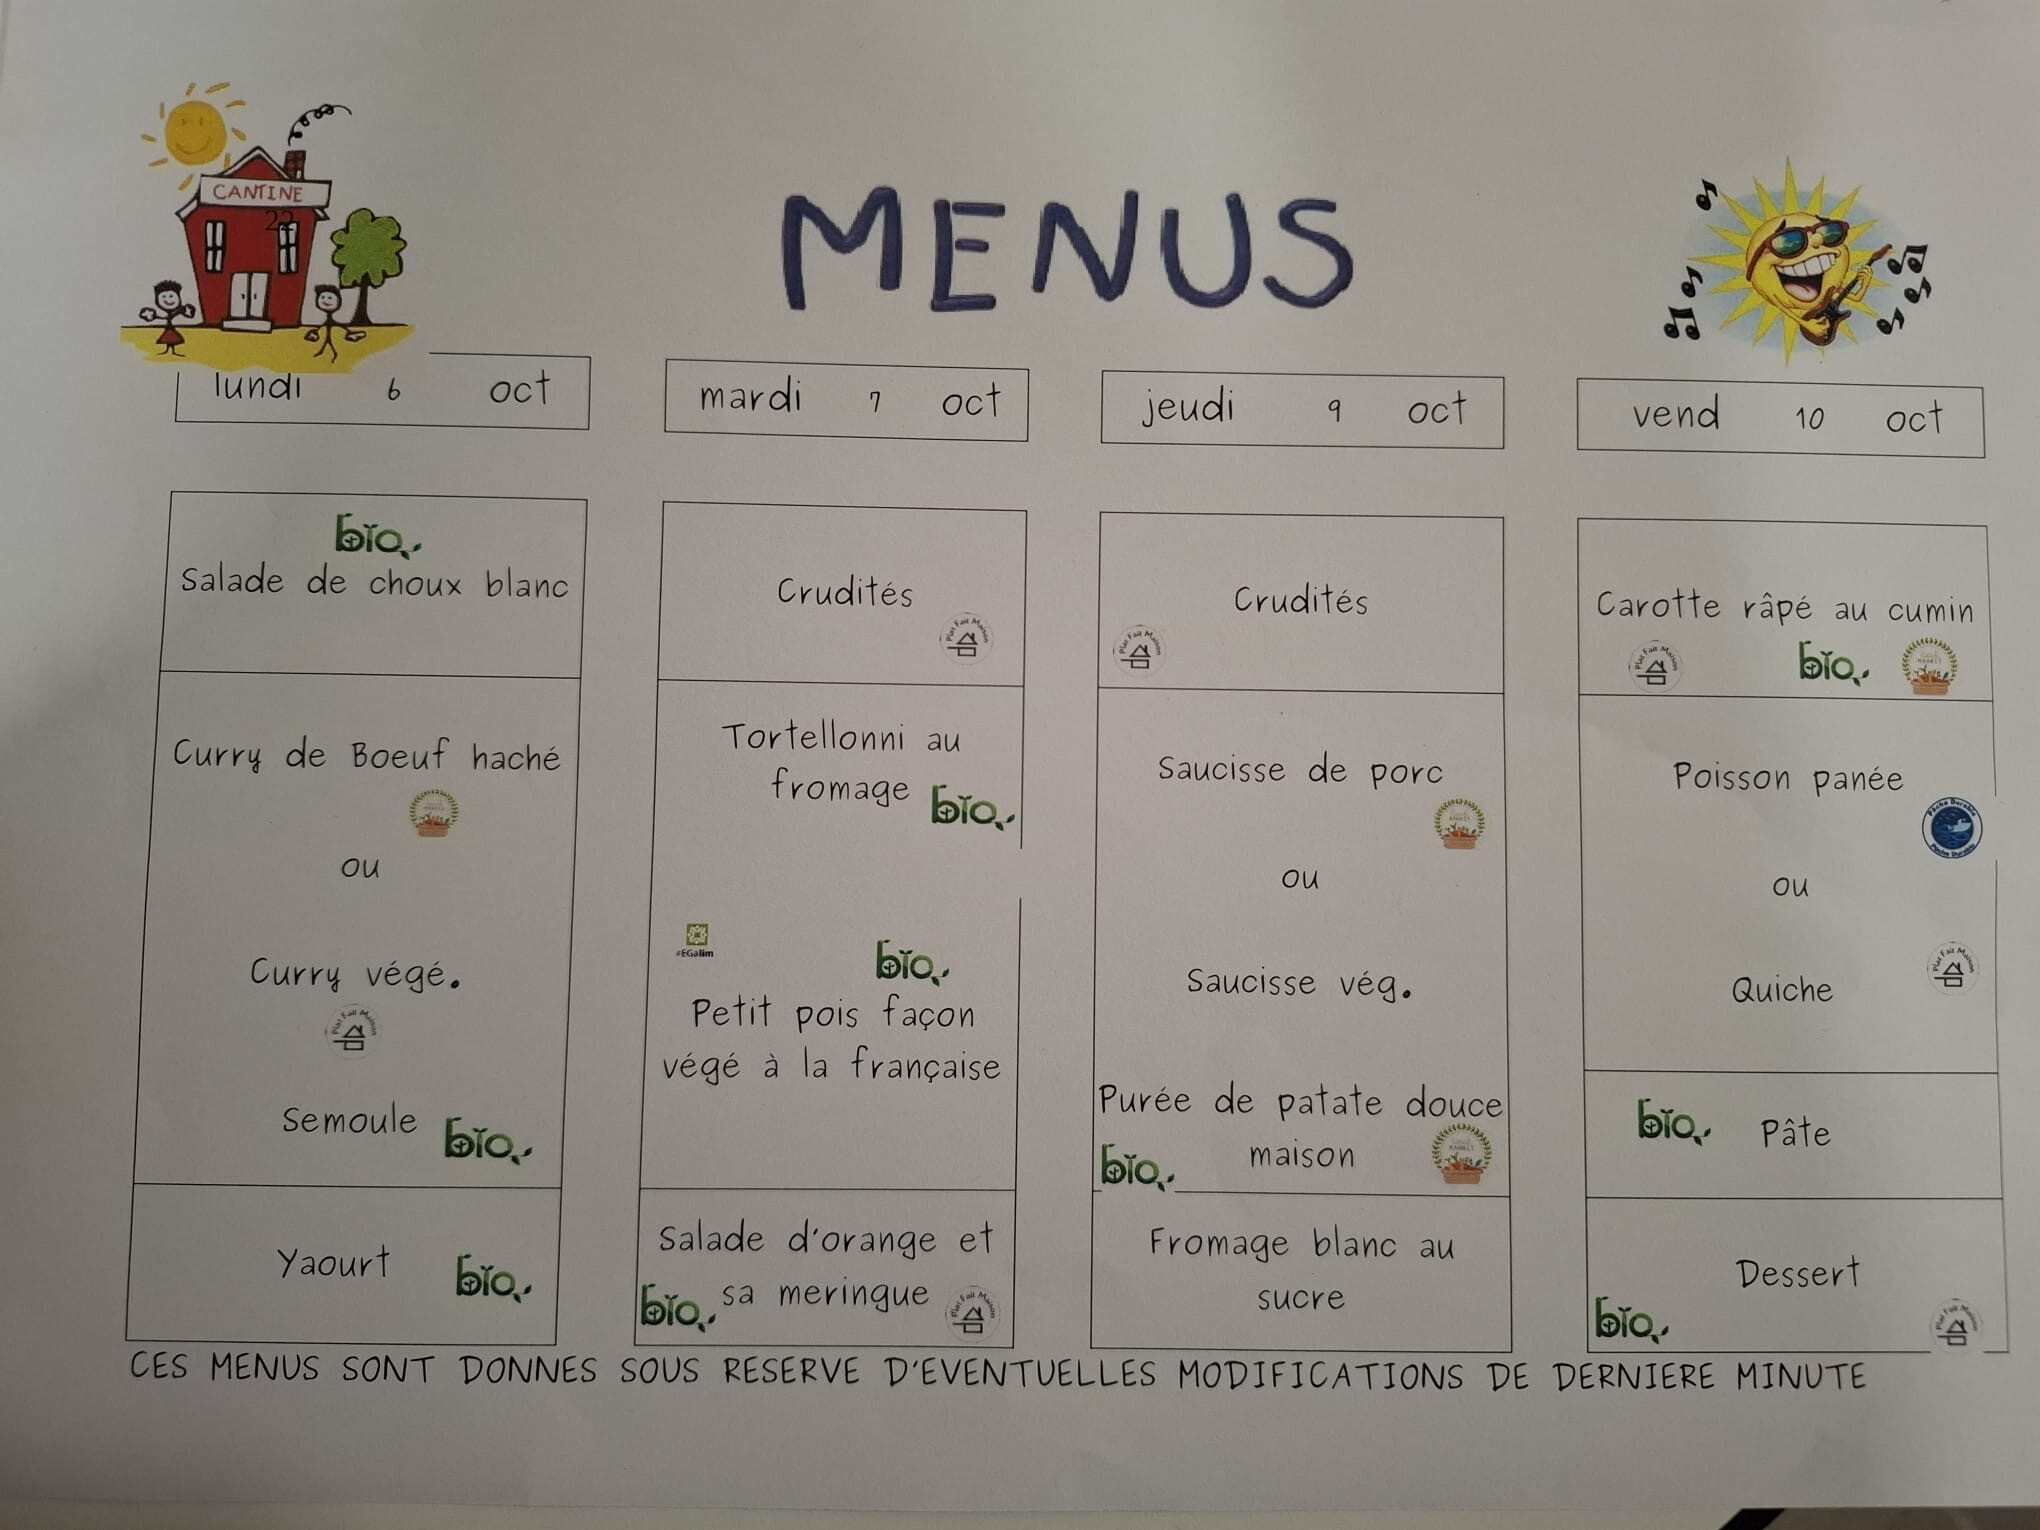 CANTINE
22
MENUS
lundi 6 oct
mardi 7 oct
jeudi 9 oct
vend 10 oct
bio
Salade de choux blanc
Curry de Boeuf haché
ou
Curry végé.
Plat Fait Maison
Semoule bio
Yaourt bio
Crudités
Plat Fait Maison
Tortellonni au
fromage bio
#EGalim bio
Petit pois façon
végé à la française
Salade d'orange et
bio sa meringue Plat Fait Maison
Crudités
Plat Fait Maison
Saucisse de porc
ou
Saucisse vég.
Purée de patate douce
bio maison
Fromage blanc au
sucre
Carotte râpé au cumin
Plat Fait Maison bio
Poisson panée
Pêche Durable
Pêche Durable
ou
Plat Fait Maison
Quiche
bio Pâte
Dessert
bio Plat Fait Maison
CES MENUS SONT DONNES SOUS RESERVE D'EVENTUELLES MODIFICATIONS DE DERNIERE MINUTE